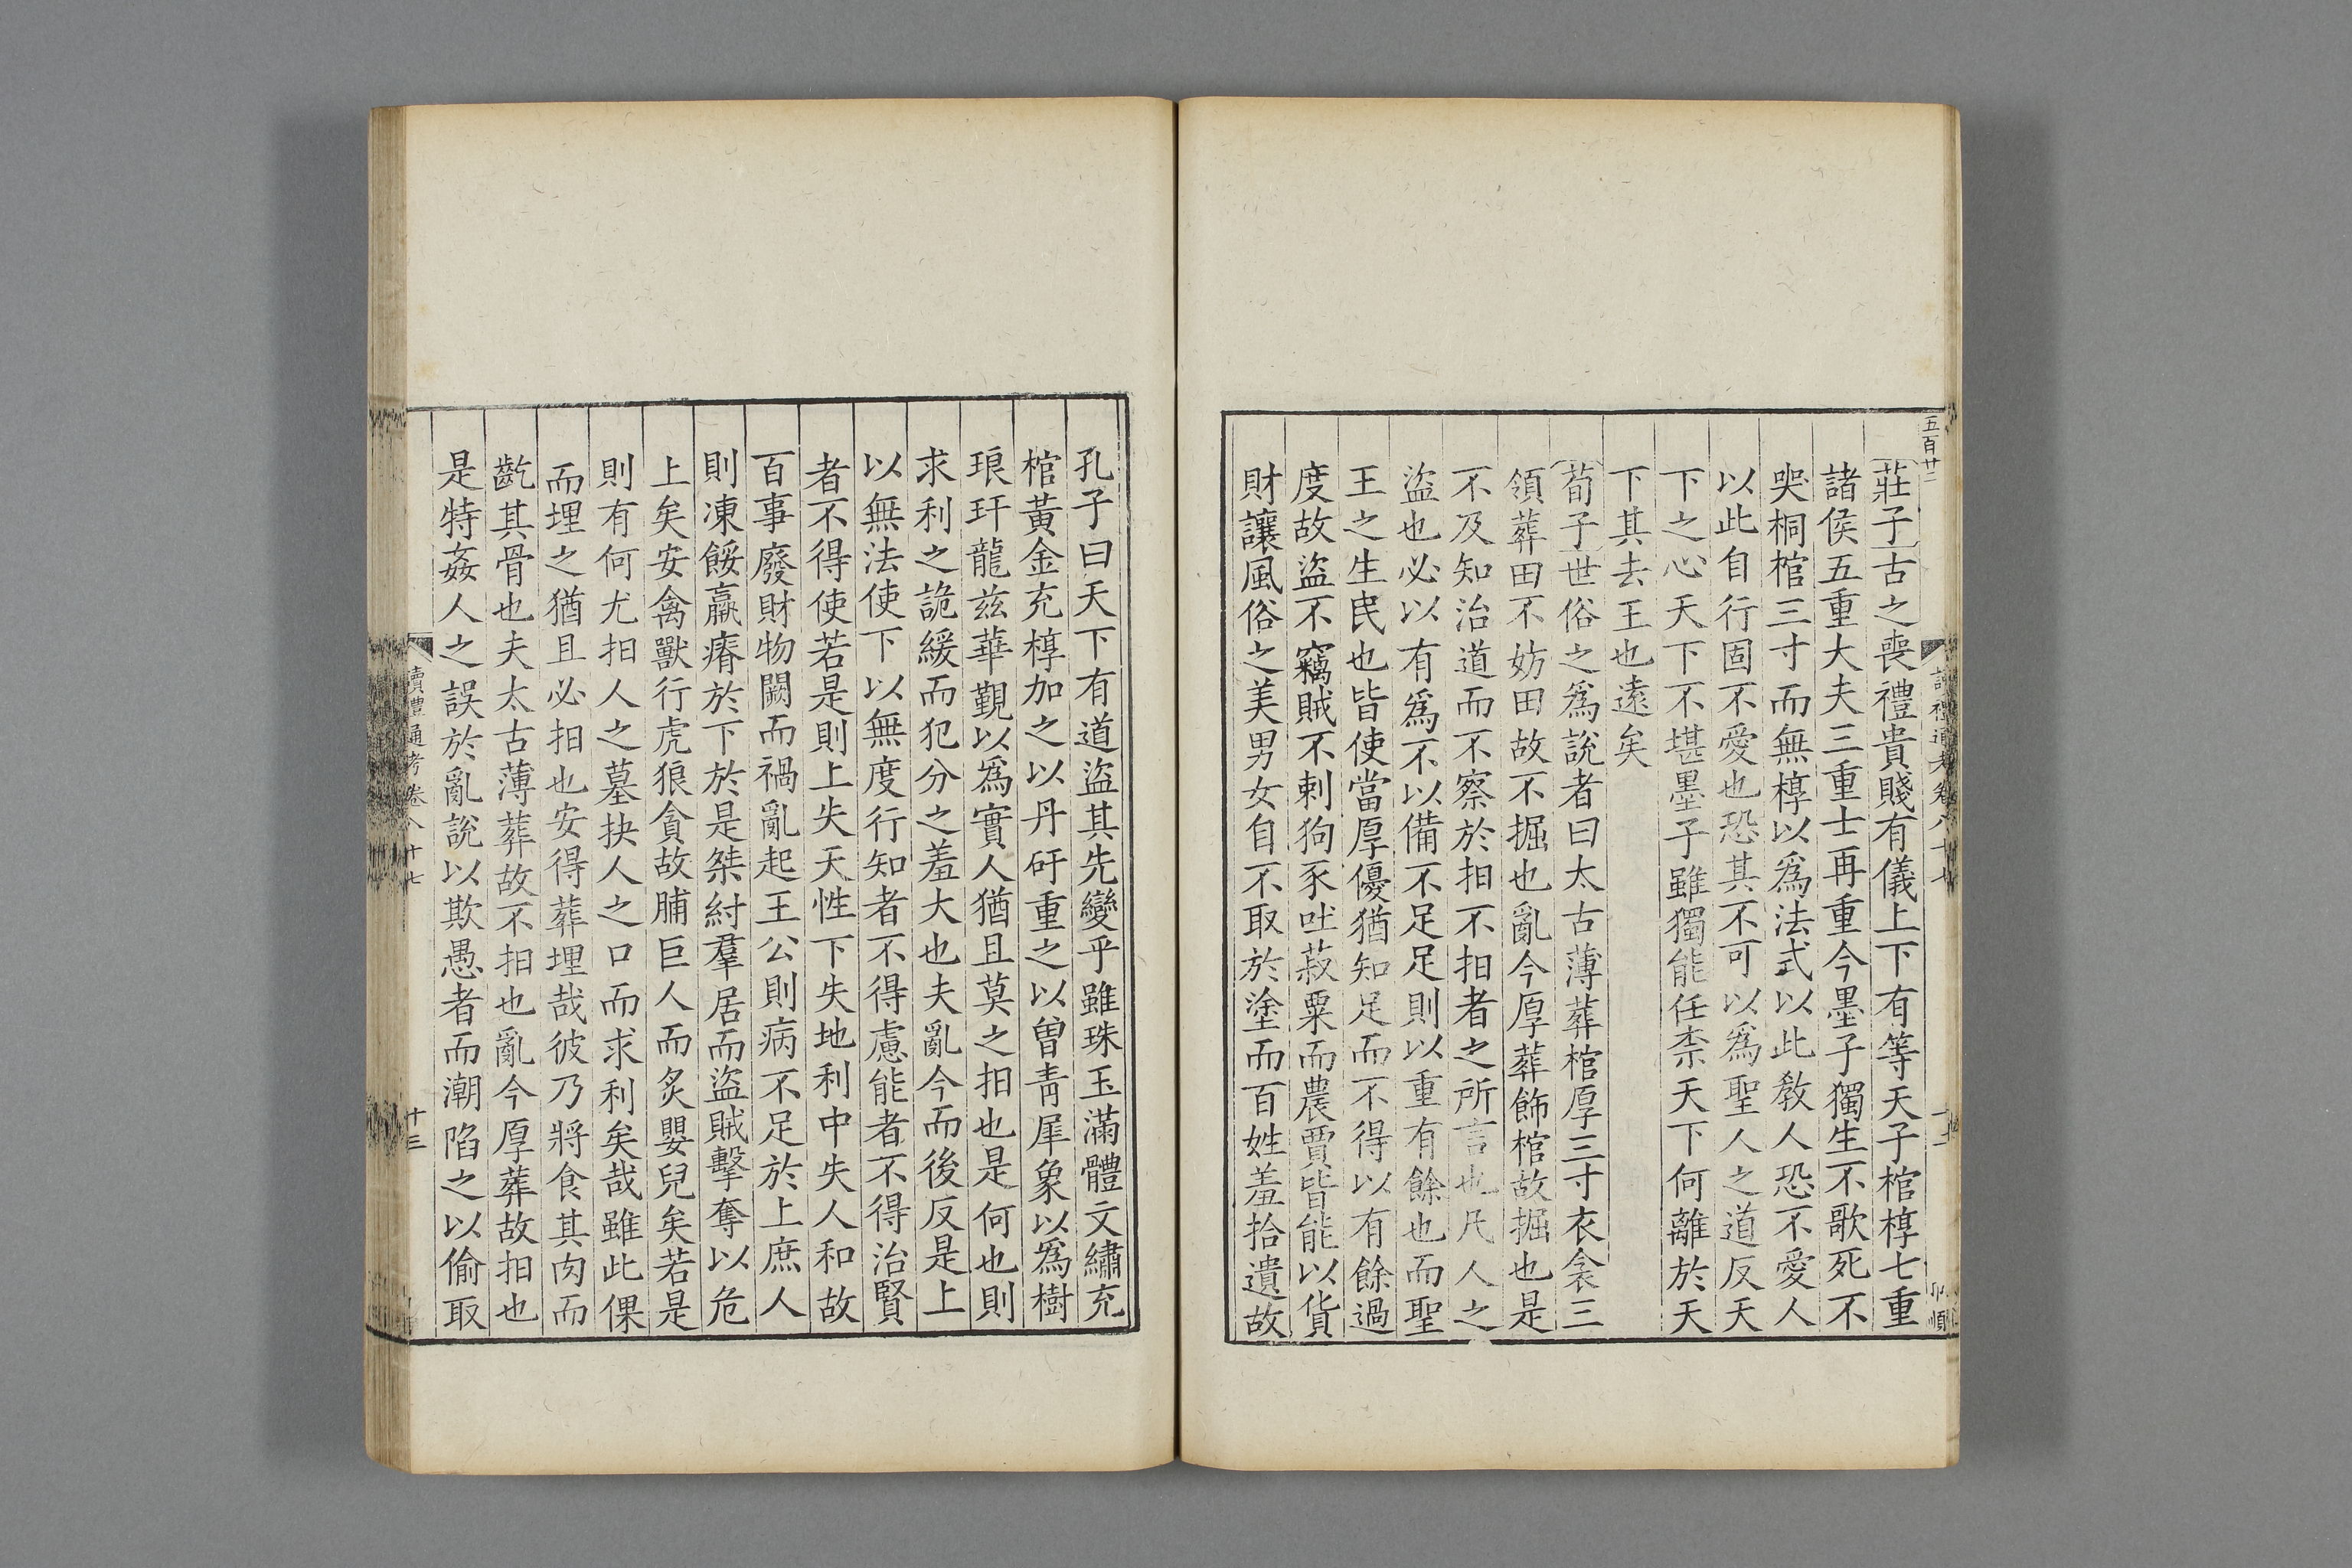 五百廿二
莊子古之喪禮貴賤有儀上下有等天子棺椁七重
諸侯五重大夫三重士再重今墨子獨生不歌死不
哭桐棺三寸而無椁以爲法式以此敎人恐不愛人
以此自行固不愛也恐其不可以爲聖人之道反天
下之心天下不堪墨子雖獨能任柰天下何離於天
下其去王也遠矣
荀子世俗之爲說者曰太古薄葬棺厚三寸衣衾三
領葬田不妨田故不掘也亂今厚葬飾棺故掘也是
不及知治道而不察於抇不抇者之所言也凡人之
盜也必以有爲不以備不足足則以重有餘也而聖
王之生民也皆使當厚優猶知足而不得以有餘過
度故盜不竊賊不刺狗豕吐菽粟而農賈皆能以貨
財讓風俗之美男女自不取於塗而百姓羞拾遺故
孔子曰天下有道盜其先變乎雖珠玉滿體文繡充
棺黃金充椁加之以丹矸重之以曾靑犀象以爲樹
琅玕龍玆華覲以爲實人猶且莫之抇也是何也則
求利之詭緩而犯分之羞大也夫亂今而後反是上
以無法使下以無度行知者不得慮能者不得治賢
者不得使若是則上失天性下失地利中失人和故
百事廢財物闕而禍亂起王公則病不足於上庶人
則凍餒羸瘠於下於是桀紂羣居而盜賊擊奪以危
上矣安禽獸行虎狼貪故脯巨人而炙嬰兒矣若是
則有何尤抇人之墓抉人之口而求利矣哉雖此倮
而埋之猶且必抇也安得葬埋哉彼乃將食其肉而
齕其骨也夫太古薄葬故不抇也亂今厚葬故抇也
是特姦人之誤於亂說以欺愚者而潮陷之以偷取
讀禮通考卷八十七
十三